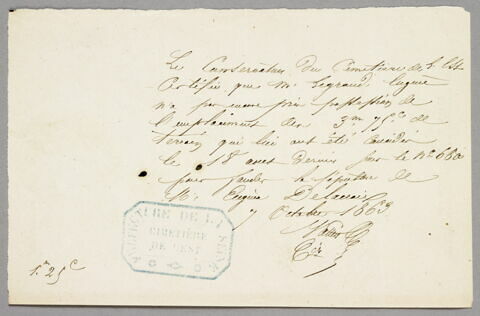 Le Conservateur du Cimetière de l'Est
Certifie que Mr Legrand Eugène
n'a pas encore pris possession de
l'emplacement des 3m 75c de
terrain qui lui ont été concédés
le 18 aout dernier sur le No 680
pour fonder la sépulture de
Mr Eugène Delacroix
7 Octobre 1863
PREFECTURE DE LA SEINE
CIMETIÈRE
DE L'EST
1m 25c